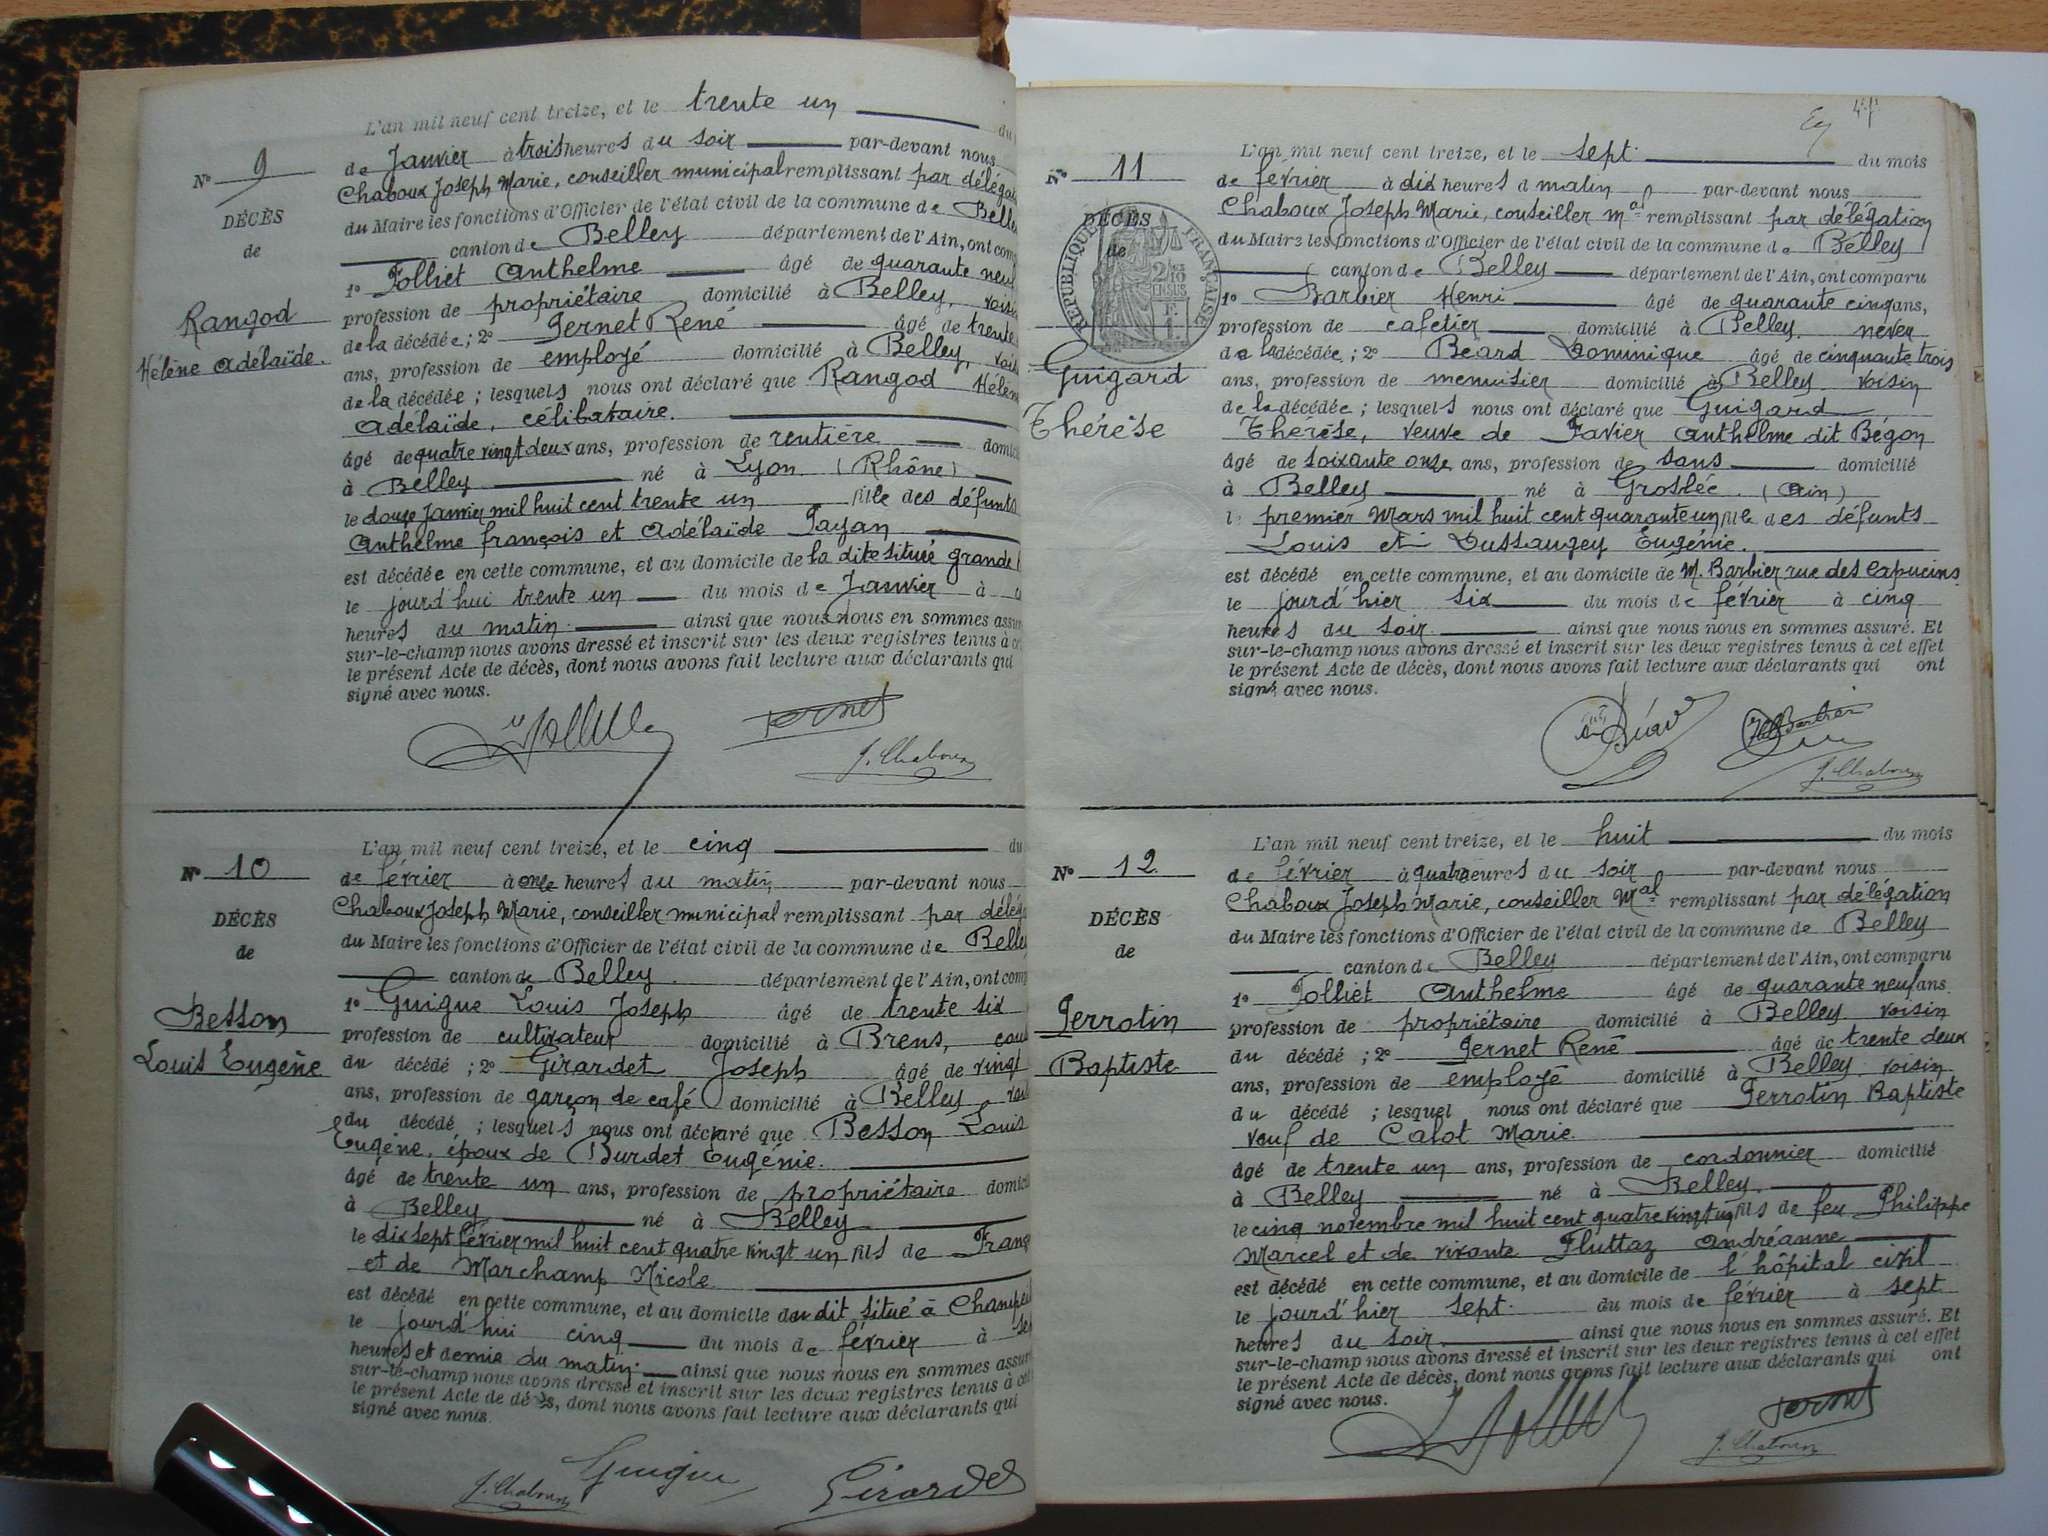 L'an mil neuf cent treize, et le trente un du
Nº 9
de Janvier à trois heures du soir par-devant nous
Chaboux Joseph Marie, conseiller municipal remplissant par déléga
DÉCÈS
du Maire les fonctions d'Officier de l'état civil de la commune de Belle
de
canton de Belley département de l'Ain, ont comp
1º Jolliet Anthelme âgé de quarante neuf
Rangod
profession de propriétaire domicilié à Belley, voisin
Hélène Adélaïde.
de la décédée ; 2º Pernet René âgé de trente
ans, profession de employé domicilié à Belley, vois
de la décédée ; lesquels nous ont déclaré que Rangod Hélèn
Adélaïde, célibataire.
âgé de quatre vingt deux ans, profession de rentière domici
à Belley né à Lyon (Rhône)
le douze Janvier mil huit cent trente un fille des défunts
Anthelme françois et Adélaïde Payan
est décédée en cette commune, et au domicile de la dite situé grande
le jourd'hui trente un du mois de Janvier à
heures du matin ainsi que nous nous en sommes assur
sur-le-champ nous avons dressé et inscrit sur les deux registres tenus à ce
le présent Acte de décès, dont nous avons fait lecture aux déclarants qui
signé avec nous.
Pernet
J. Chaboux
L'an mil neuf cent treize, et le cinq du
Nº 10
de février à onze heures du matin par-devant nous
Chaboux Joseph Marie, conseiller municipal remplissant par délég
DÉCÈS
du Maire les fonctions d'Officier de l'état civil de la commune de Belle
de
canton de Belley département de l'Ain, ont comp
1º Guigue Louis Joseph âgé de trente six
Besson
profession de cultivateur domicilié à Brens, cous
Louis Eugène
du décédé ; 2º Girardet Joseph âgé de vingt
ans, profession de garçon de café domicilié à Belley
du décédé ; lesquels nous ont déclaré que Besson Louis
Eugène, époux de Burdet Eugénie.
âgé de trente un ans, profession de propriétaire domici
à Belley né à Belley
le dix sept février mil huit cent quatre vingt un fils de Franç
et de Marchamp Nicole
est décédé en cette commune, et au domicile du dit situé à Champeil
le jourd'hui cinq du mois de février à se
heures et demie du matin ainsi que nous nous en sommes assur
sur-le-champ nous avons dressé et inscrit sur les deux registres tenus à cet
le présent Acte de décès, dont nous avons fait lecture aux déclarants qui
signé avec nous.
J. Chaboux Guigue Girardet
L'an mil neuf cent treize, et le sept du mois
Nº 11
de février à dix heures d matin par-devant nous
Chaboux Joseph Marie, conseiller mal remplissant par délégation
DÉCÈS
du Maire les fonctions d'Officier de l'état civil de la commune de Belley
de
canton de Belley département de l'Ain, ont comparu
RÉPUBLIQUE FRANÇAISE
1º Barbier Henri âgé de quarante cinq ans,
profession de cafetier domicilié à Belley. neveu
Guigard
de la décédée ; 2º Béard Dominique âgé de cinquante trois
ans, profession de menuisier domicilié à Belley voisin
Thérèse
de la décédée ; lesquels nous ont déclaré que Guigard
Thérèse, veuve de Favier Anthelme dit Bégon
âgé de soixante onze ans, profession de sans domicilié
à Belley né à Groslée (Ain)
l premier Mars mil huit cent quarante un fille des défunts
Louis et Dussaugey Eugénie.
est décédé en cette commune, et au domicile de M. Barbier rue des Capucins
le jourd'hier six du mois de février à cinq
heures du soir ainsi que nous nous en sommes assuré. Et
sur-le-champ nous avons dressé et inscrit sur les deux registres tenus à cet effet
le présent Acte de décès, dont nous avons fait lecture aux déclarants qui ont
signé avec nous.
Béard Barbier
J. Chaboux
L'an mil neuf cent treize, et le huit du mois
Nº 12
de février à quatre heures du soir par-devant nous
Chaboux Joseph Marie, conseiller Mal remplissant par délégation
DÉCÈS
du Maire les fonctions d'Officier de l'état civil de la commune de Belley
de
canton de Belley département de l'Ain, ont comparu
1º Jolliet Anthelme âgé de quarante neuf ans
Perrotin
profession de propriétaire domicilié à Belley voisin
Baptiste
du décédé ; 2º Pernet René âgé de trente deux
ans, profession de employé domicilié à Belley voisin
du décédé ; lesquel nous ont déclaré que Perrotin Baptiste
veuf de Calot Marie.
âgé de trente un ans, profession de cordonnier domicilié
à Belley né à Belley
le cinq novembre mil huit cent quatre vingt un fils de feu Philippe
Marcel et de vivante Fluttaz Andréanne
est décédé en cette commune, et au domicile de l'hôpital civil
le jourd'hier sept du mois de février à sept
heures du soir ainsi que nous nous en sommes assuré. Et
sur-le-champ nous avons dressé et inscrit sur les deux registres tenus à cet effet
le présent Acte de décès, dont nous avons fait lecture aux déclarants qui ont
signé avec nous.
Pernet
J. Chaboux